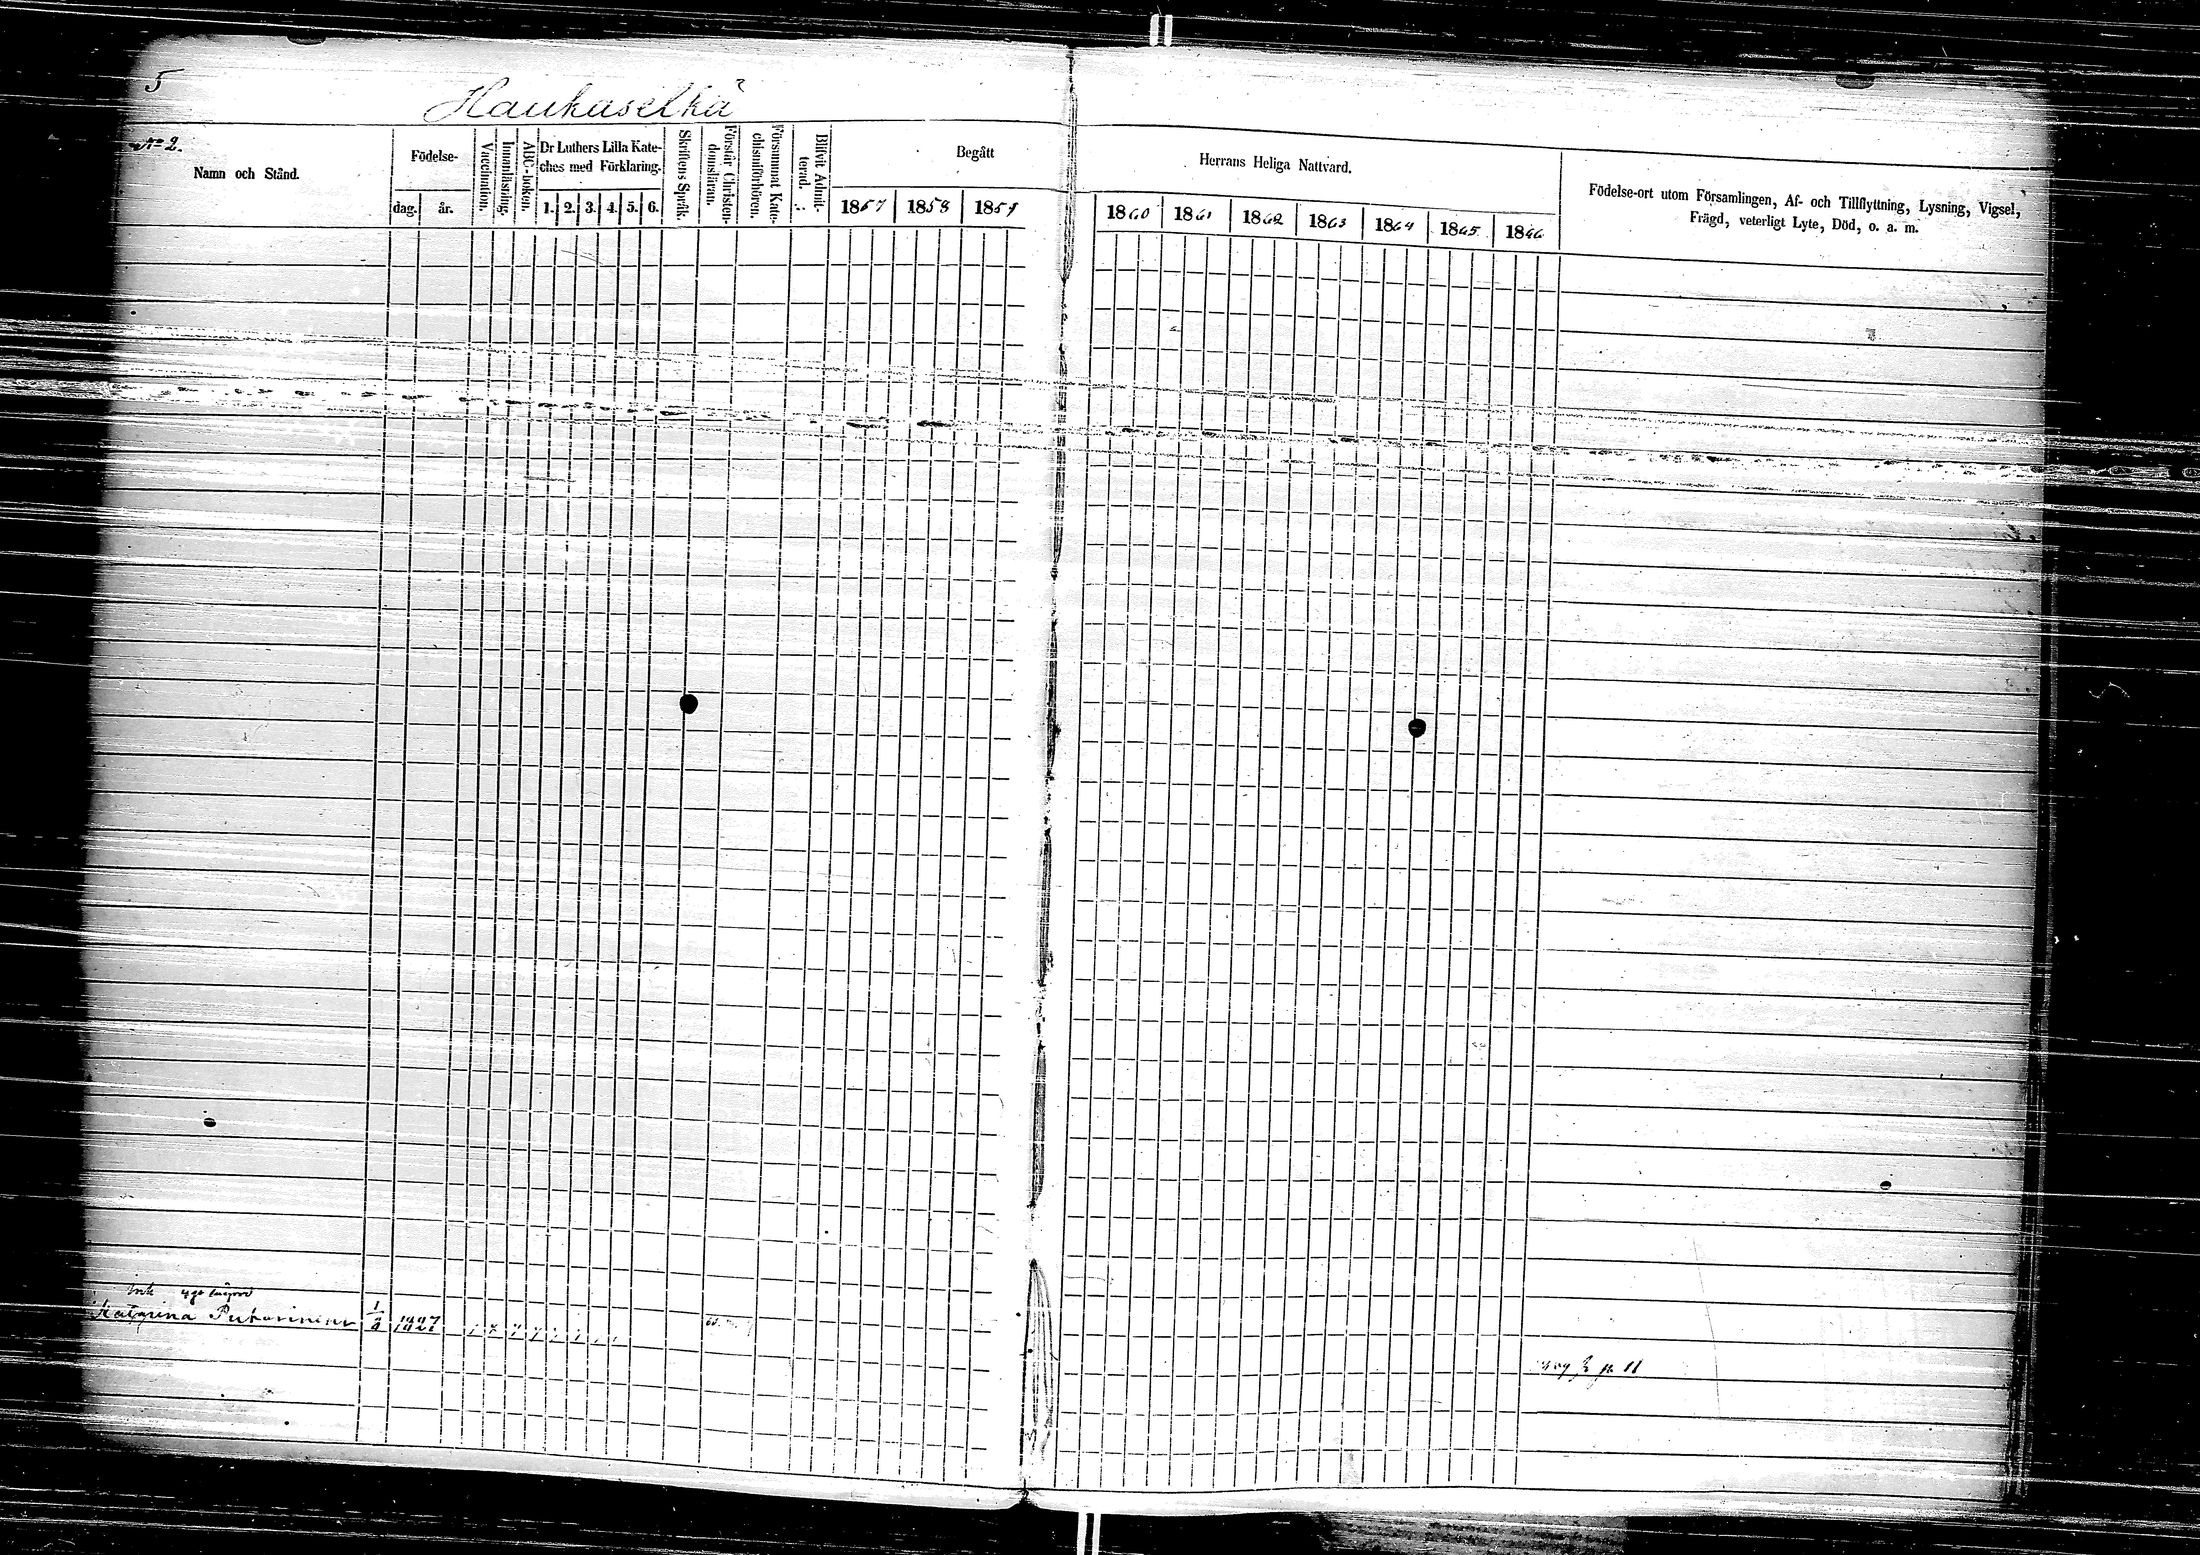 5
Haukuselkä
No 2.
Namn och Stånd.
Födelse-
dag. år.
Vaccination.
Innanläsning.
ABC-boken.
Dr Luthers Lilla Kate-
ches med Förklaring.
1. 2. 3. 4. 5. 6.
Skriftens Språk.
Förstår Christen-
domsläran.
Försummat Kate-
chismiförhören.
Blifvit Admit-
terad.
Begått
1857 1858 1859
Herrans Heliga Nattvard.
1860 1861 1862 1863 1864 1865 1866
Födelse-ort utom Församlingen, Af- och Tillflyttning, Lysning, Vigsel,
Frägd, veterligt Lyte, Död, o. a. m.
Katarina 1/4 1827
p. 11